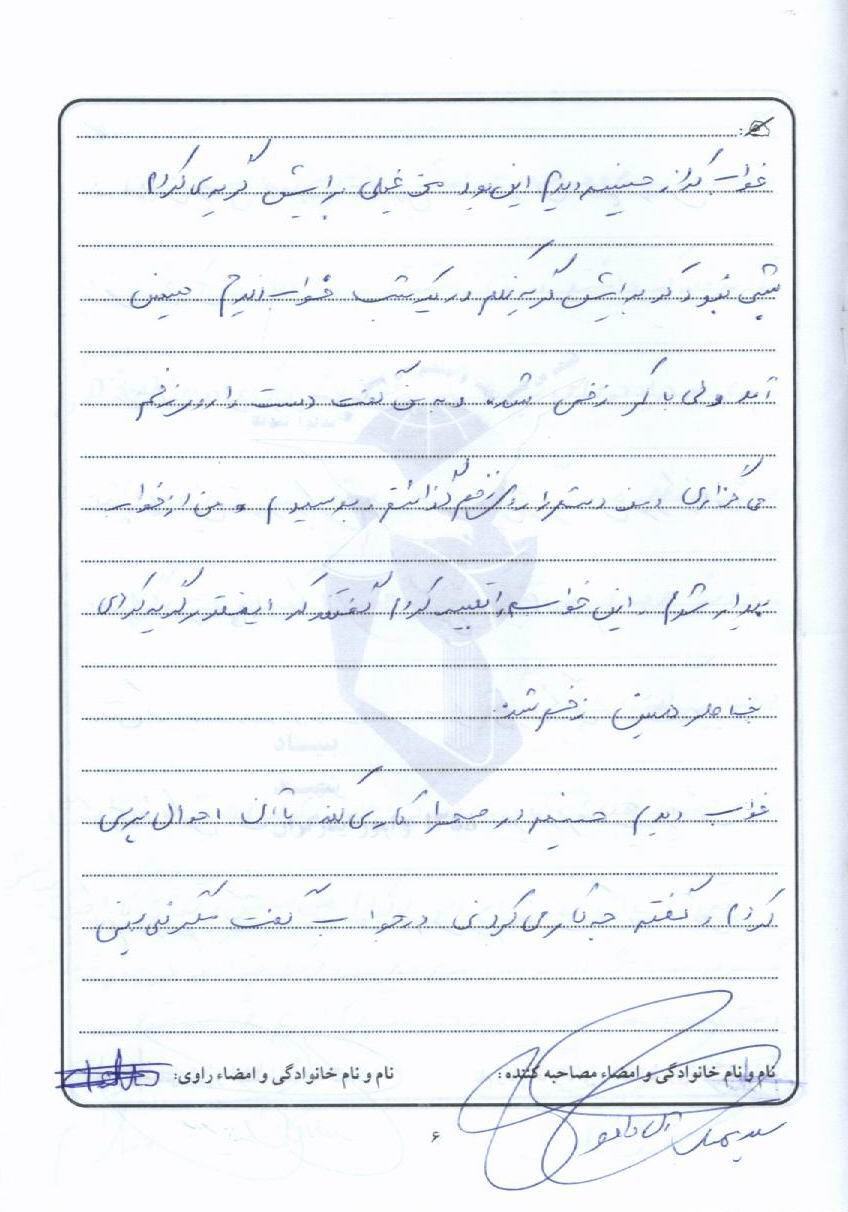 خواب که از حسینم دیدم این بود من خیلی برایش گریه می کردم
شبی نبود که برایش گریه نکنم در یک شب خواب دیدم حسین
آمد ولی با کمر زخمی شده و به من گفت دست را روی زخم
می گزاری و من دستم را روی زخم گذاشتم و بوسیدم و من از خواب
بیدار شدم. این خواب را تعبیر کردم گفتند که اینقدر گریه کردی
حسین زخم شده.
خواب دیدم حسینم در صحرا کار می کند با آن احوال پرسی
کردم و گفتم چه کار می کردی در جواب گفت مگر نمی بینی
نام و نام خانوادگی و امضاء مصاحبه کننده:
نام و نام خانوادگی و امضاء راوی:
۶